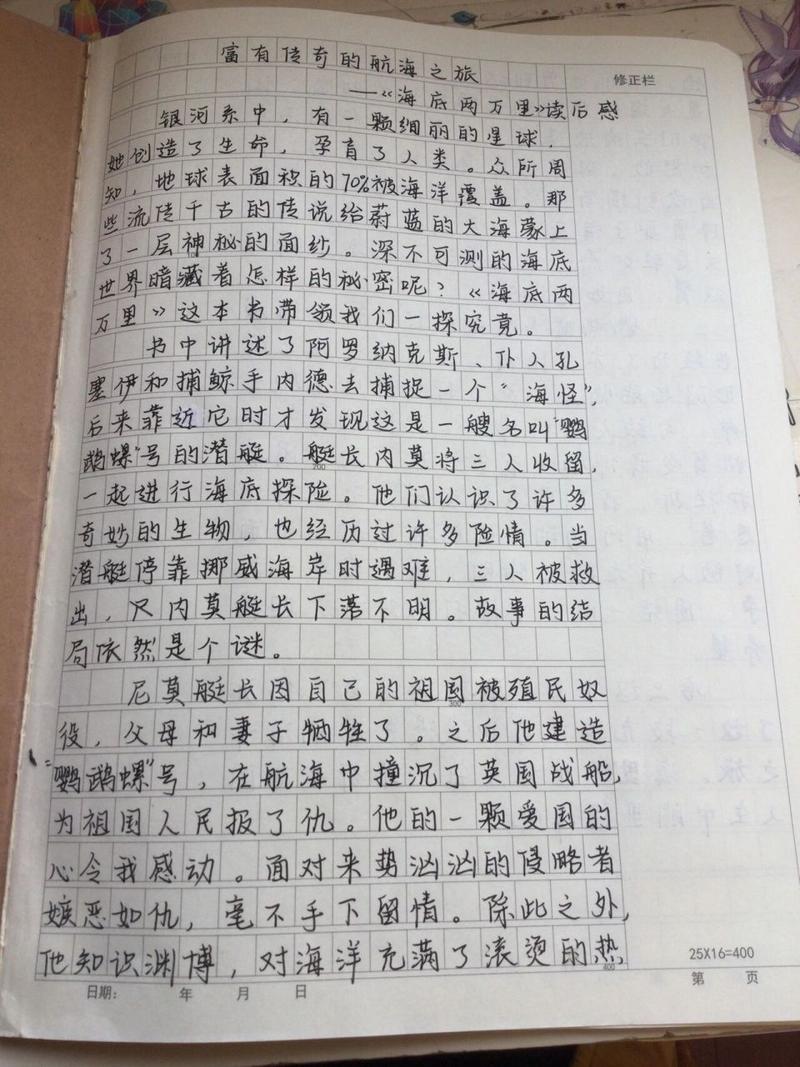 富有传奇的航海之旅
——《海底两万里》读后感
修正栏
银河系中，有一颗绚丽的星球，
她创造了生命，孕育了人类。众所周
知，地球表面积的70%被海洋覆盖。那
些流传千古的传说给蔚蓝的大海蒙上
了一层神秘的面纱。深不可测的海底
世界暗藏着怎样的秘密呢？《海底两
万里》这本书带领我们一探究竟。
书中讲述了阿罗纳克斯、仆人孔
塞伊和捕鲸手内德去捕捉一个“海怪”，
后来靠近它时才发现这是一艘名叫“鹦
鹉螺”号的潜艇。艇长内莫将三人收留，
200
一起进行海底探险。他们认识了许多
奇妙的生物，也经历过许多险情。当
潜艇停靠挪威海岸时遇难，三人被救
出，尺内莫艇长下落不明。故事的结
局依然是个谜。
尼莫艇长因自己的祖国被殖民奴
300
役，父母和妻子牺牲了。之后他建造
“鹦鹉螺”号，在航海中撞沉了英国战船，
为祖国人民报了仇。他的一颗爱国的
心令我感动。面对来势汹汹的侵略者
嫉恶如仇，毫不手下留情。除此之外，
他知识渊博，对海洋充满了滚烫的热
400
25X16=400
日期： 年 月 日
第 页